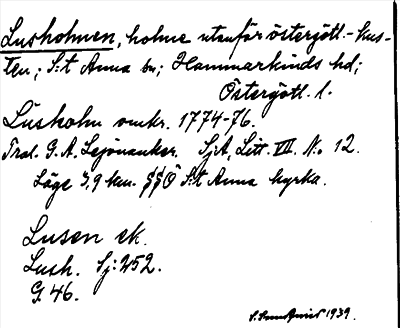 Lusholmen, holme utanför östergötl.-kus-
ten; S:t Anna sn; Hammarkinds hd;
Östergötl. l.
Lusholm omkr. 1774-76.
Trol. G. A. Lejonanker. SjA, Litt. VII. No 12.
Läge 3,9 km. SSÖ S:t Anna kyrka.
Lusen ek.
Lush. Sj: 252.
G. 46.
1939.